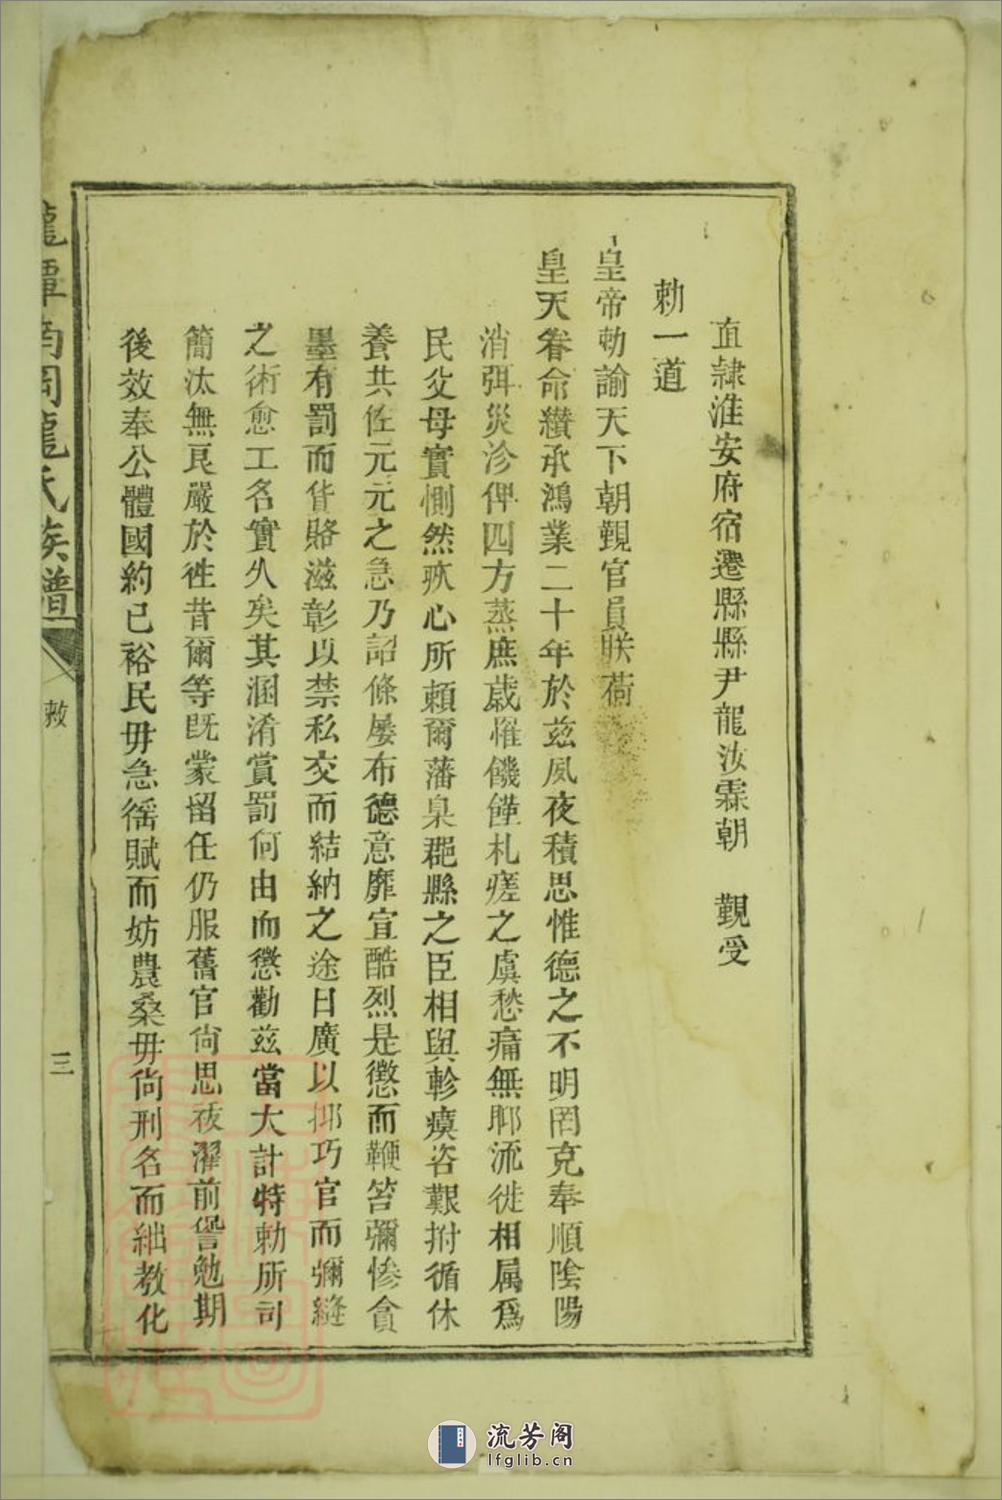 直隸淮安府宿遷縣縣尹龍汝霖朝　覲受
勅一道
皇帝勅諭天下朝覲官員朕荷
皇天眷命纘承鴻業二十年於兹夙夜積思惟德之不明罔克奉順陰陽
消弭災沴俾四方蒸庶歲罹饑饉札瘥之虞愁痛無聊流徙相属爲
民父母實惻然疚心所頼爾藩臬郡縣之臣相與軫瘼咨艱拊循休
養共佐元元之急乃詔條屡布德意靡宣酷烈是懲而鞭笞彌慘貪
墨有罰而貨賂滋彰以禁私交而結納之途日廣以抑巧官而彌縫
之術愈工名實久矣其溷淆賞罰何由而懲勸兹當大計特勅所司
簡汰無良嚴於徃昔爾等既蒙留任仍服舊官尙思祓濯前愆勉期
後效奉公體國約己裕民毋急徭賦而妨農桑毋尙刑名而絀教化
龍潭南岡龍氏族譜
敕
三
流芳阁
lfglib.cn